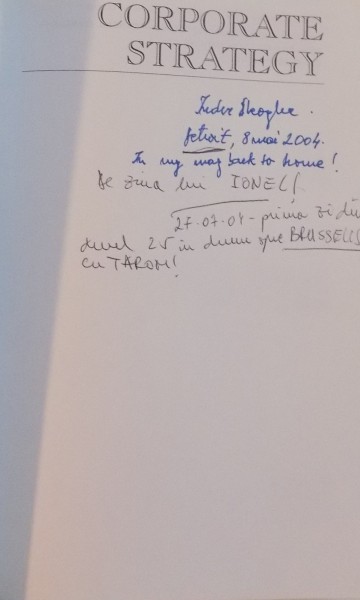 CORPORATE
STRATEGY
Tudor
Detroit, 8 mai 2004.
In my way back to home!
De ziua lui IONEL!
27.07.07 - prima zi din
anul 25 in drum spre BRUSSELLS
cu TAROM!